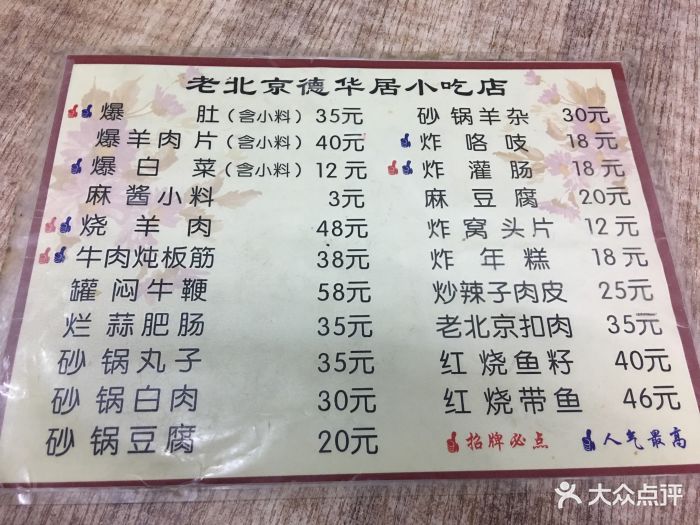 老北京德华居小吃店
爆肚(含小料) 35元
爆羊肉片(含小料) 40元
爆白菜(含小料) 12元
麻酱小料 3元
烧羊肉 48元
牛肉炖板筋 38元
罐焖牛鞭 58元
烂蒜肥肠 35元
砂锅丸子 35元
砂锅白肉 30元
砂锅豆腐 20元
砂锅羊杂 30元
炸咯吱 18元
炸灌肠 18元
麻豆腐 20元
炸窝头片 12元
炸年糕 18元
炒辣子肉皮 25元
老北京扣肉 35元
红烧鱼籽 40元
红烧带鱼 46元
招牌必点 人气最高
大众点评